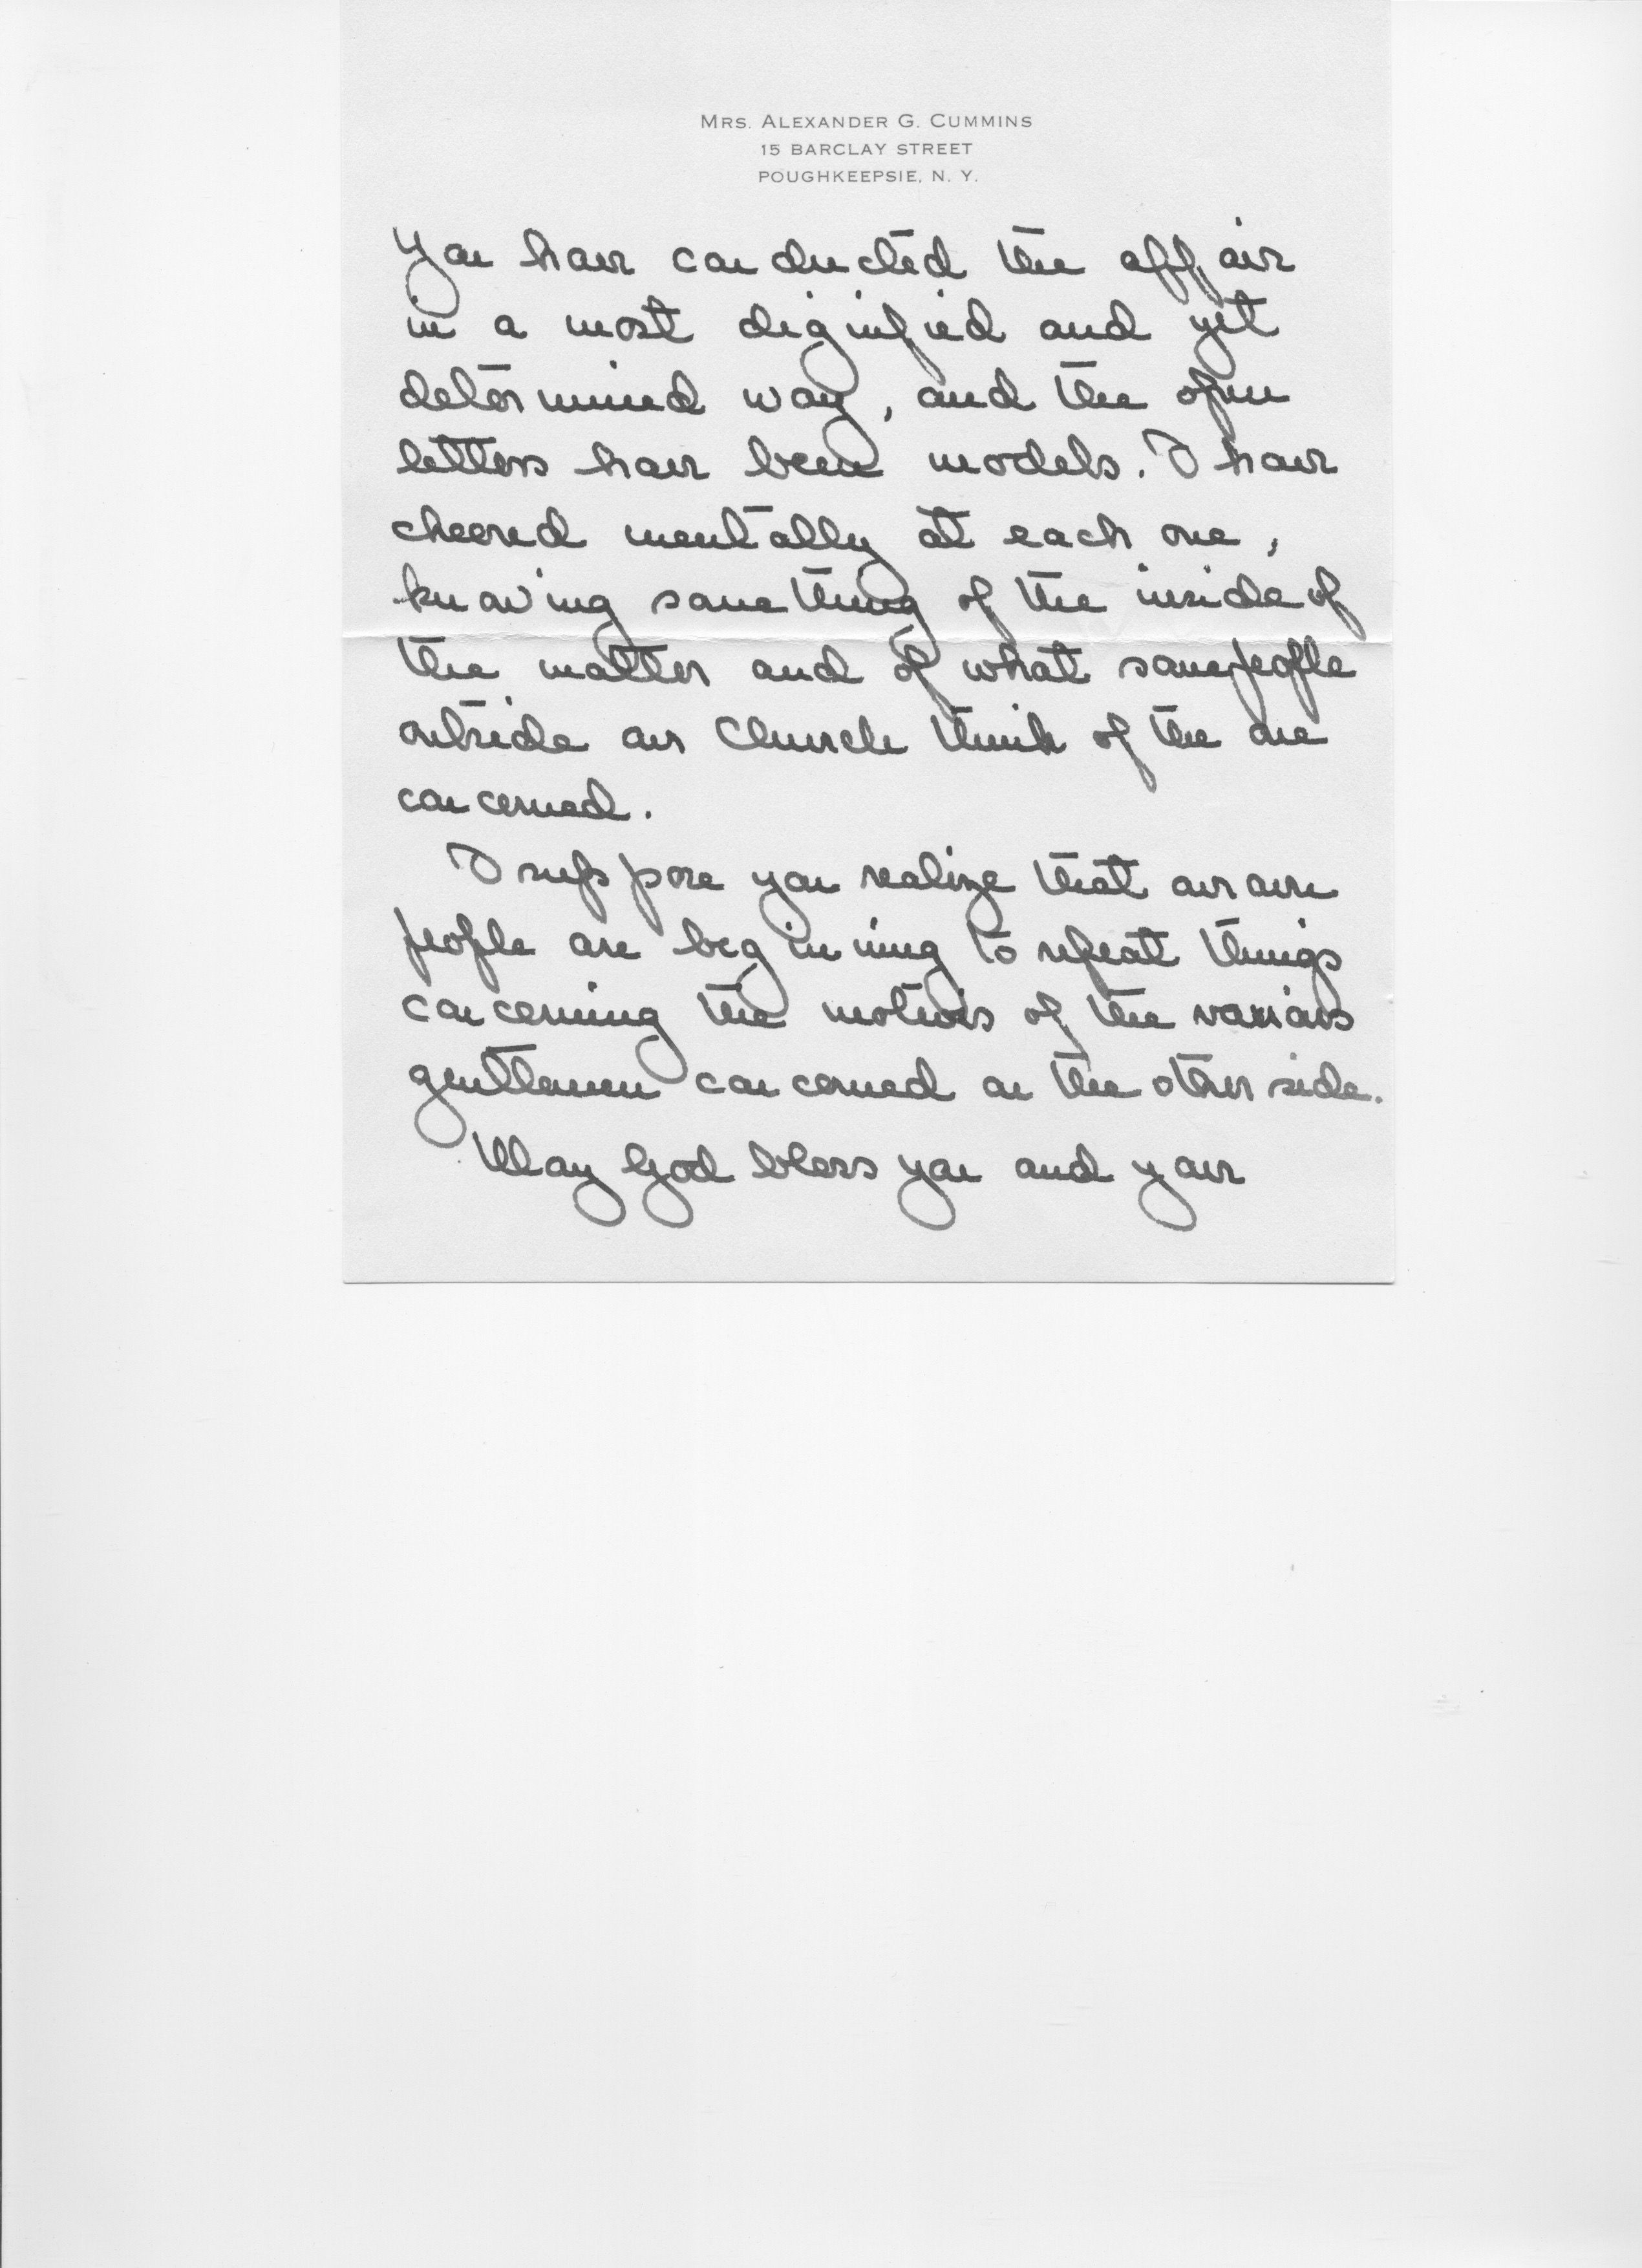 MRS. ALEXANDER G. CUMMINS
15 BARCLAY STREET
POUGHKEEPSIE, N. Y.
You have conducted the affair
in a most diginfied and yet
determined way, and the open
letters have been models. I have
cheered mentally at each one,
knowing something of the inside of
the matter and of what some people
outside our Church think of the one
concerned.
I suppose you realize that our own
people are beginning to repeat things
concerning the motives of the various
gentlemen concerned on the other side.
May God bless you and your